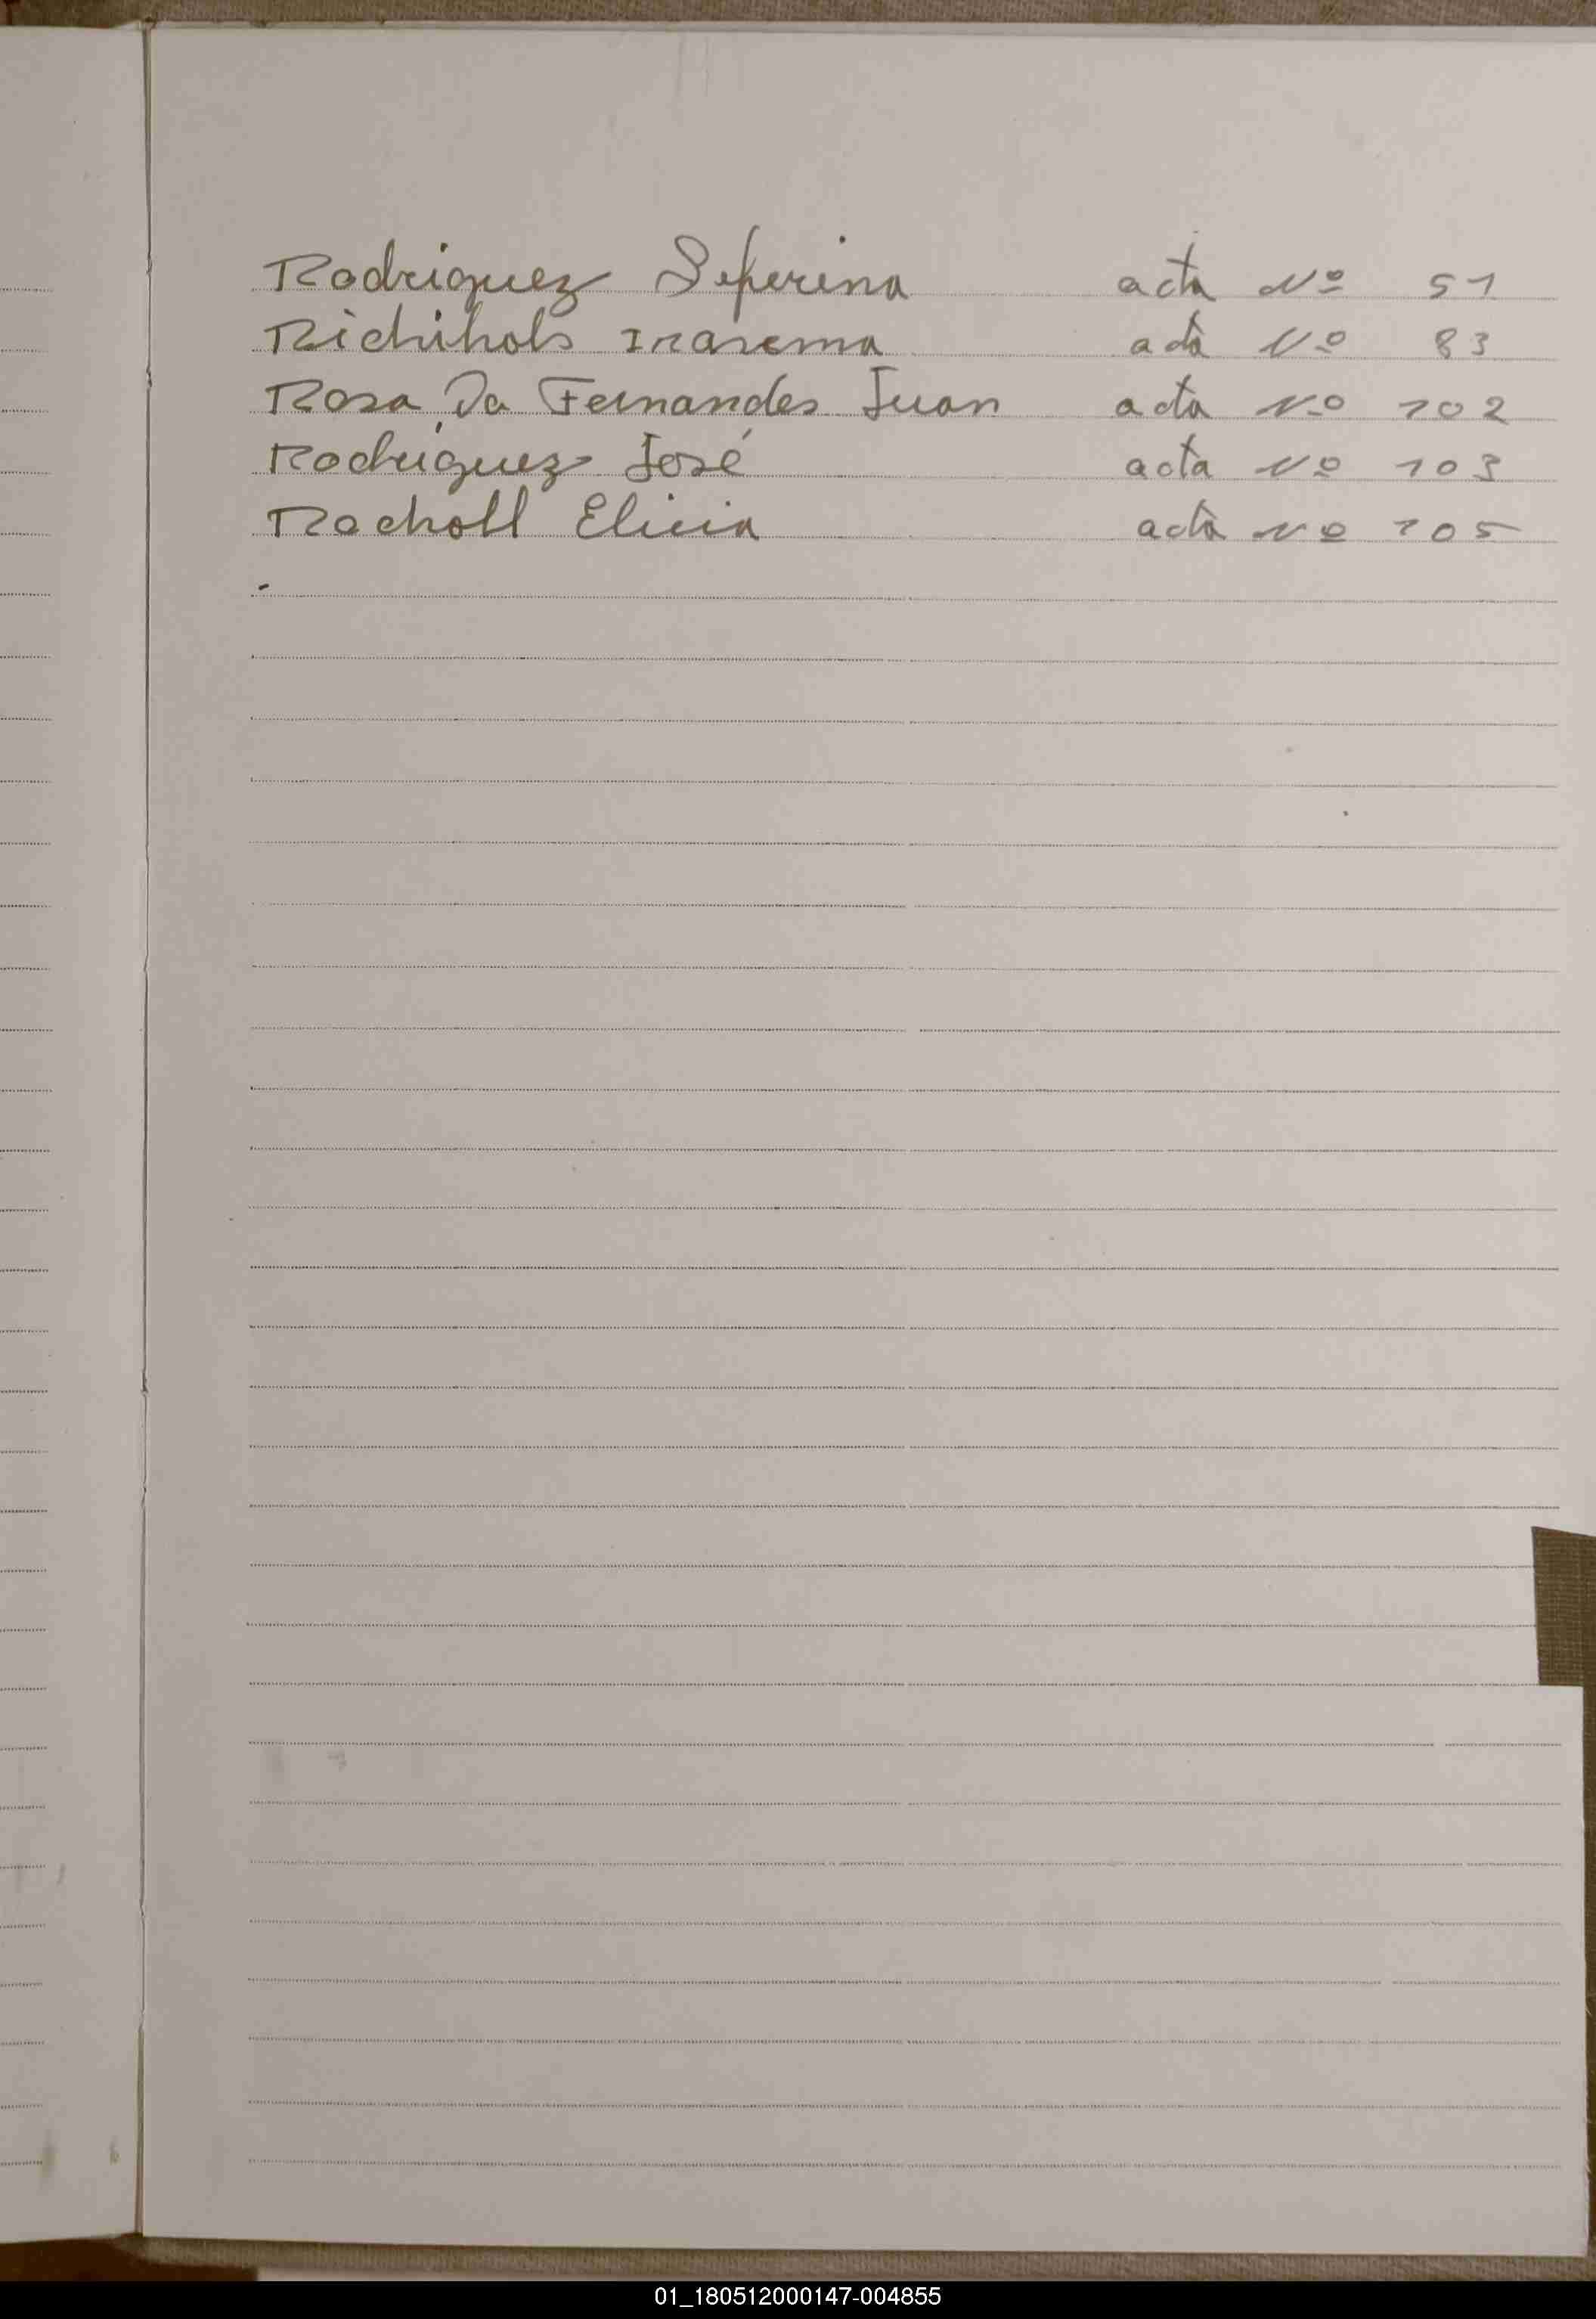 Rodriguez Seferina acta Nº 51
Richihols Irasema acta Nº 83
Rosa Da Fernandes Juan acta Nº 102
Rodriguez José acta Nº 103
Racholl Elicia acta Nº 105
01_180512000147-004855